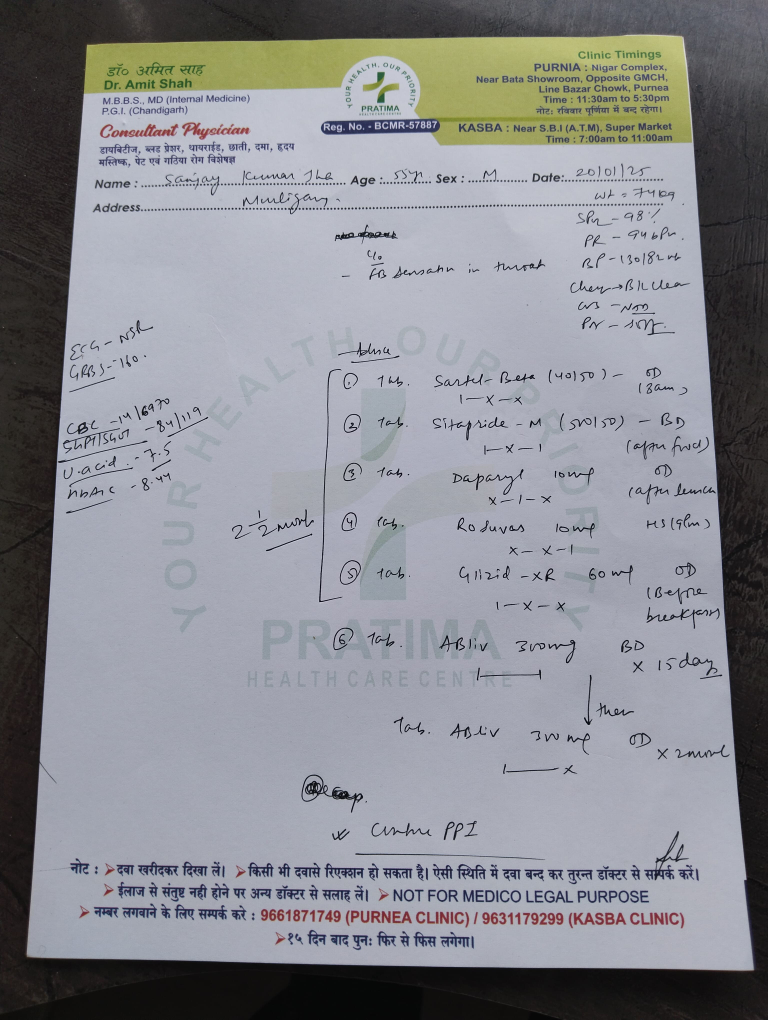 डॉ० अमित साह
Dr. Amit Shah
M.B.B.S., MD (Internal Medicine)
P.G.I. (Chandigarh)
Consultant Physician
डायबिटीज, ब्लड प्रेशर, थायराईड, छाती, दमा, हृदय
मस्तिष्क, पेट एवं गठिया रोग विशेषज्ञ
YOUR HEALTH, OUR PRIORITY
PRATIMA
HEALTH CARE CENTRE
Reg. No. - BCMR-57887
Clinic Timings
PURNIA : Nigar Complex,
Near Bata Showroom, Opposite GMCH,
Line Bazar Chowk, Purnea
Time : 11:30am to 5:30pm
नोट: रविवार पूर्णिया में बन्द रहेगा।
KASBA : Near S.B.I (A.T.M), Super Market
Time : 7:00am to 11:00am
Name : Sanjay Kumar Jha Age : 55yr Sex : M Date: 20/01/25
Address
wt = 74 kg
SPO2 - 98%
PR - 94 bpm
BP - 130/82
Chest → B/L clear
CVS - NAD
c/o
- FB sensation in throat
ECG - NSR
GRBS - 160.
CBC - 14/6970
SGPT/SGOT - 84/119
U.acid - 7.5
HbA1c - 8.44
Advice
① Tab. Sartel-Beta (40/50) - OD
1-x-x (8am)
② Tab. Sitapride-M (500/50) - BD
1-x-1 (after food)
③ Tab. 10mg OD
x-1-x (after lunch)
④ Tab. 10mg HS (9pm)
x-x-1
⑤ Tab. Glizid-XR 60mg OD
1-x-x (Before breakfast)
2 1/2 month
⑥ Tab. ABliv 300mg BD
x 15 days
then
Tab. ABliv 300mg OD
x 2 month
PPI
YOUR HEALTH, OUR PRIORITY
PRATIMA
HEALTH CARE CENTRE
नोट : ➢ दवा खरीदकर दिखा लें। ➢ किसी भी दवासे रिएक्शन हो सकता है। ऐसी स्थिति में दवा बन्द कर तुरन्त डॉक्टर से सम्पर्क करें।
➢ ईलाज से संतुष्ट नही होने पर अन्य डॉक्टर से सलाह लें। ➢ NOT FOR MEDICO LEGAL PURPOSE
➢ नम्बर लगवाने के लिए सम्पर्क करे : 9661871749 (PURNEA CLINIC) / 9631179299 (KASBA CLINIC)
➢ १५ दिन बाद पुनः फिर से फिस लगेगा।